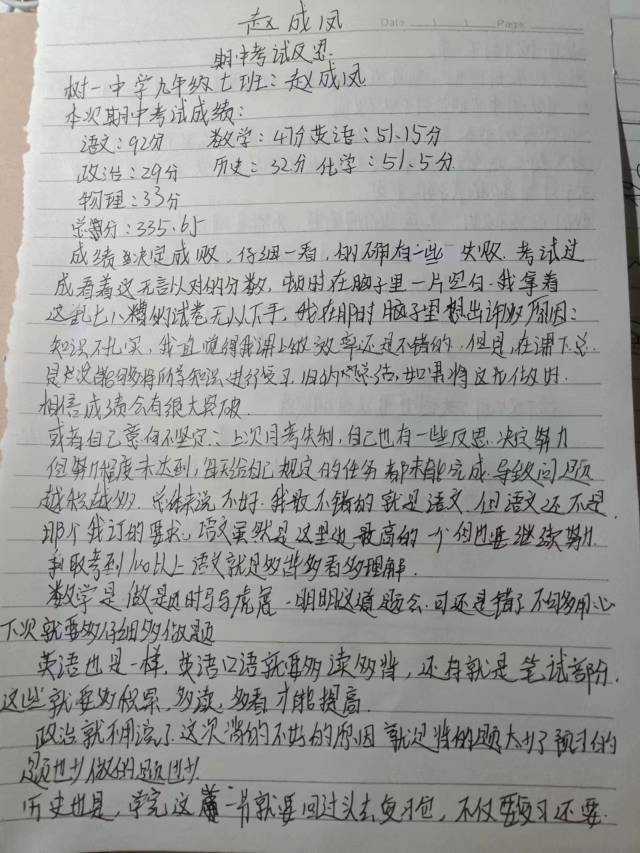 赵成凤
Date / / Page
期中考试反思
树一中学九年级七班：赵成凤
本次期中考试成绩：
语文：92分 数学：47分 英语：51.15分
政治：29分 历史：32分 化学：51.5分
物理：33分
总分：335.65
成绩决定成败，仔细一看，的确有一些失败。考试过
成看着这无言以对的分数，顿时在脑子里一片空白。我拿着
这乱七八糟的试卷无以下手，我在那时脑子里想出许多原因：
知识不扎实，我一直觉得我课上做效率还是不错的，但是，在课下总
是没能够将所学知识进行复习，总结，如果将这方做好，
相信成绩会有很大突破
或者自己意向不坚定：上次月考失利，自己也有一些反思，决定努力
但努力程度未达到，每天给自己规定的任务都未能完成，导致问题
越积越多，总体来说不好，我最不错的就是语文，但语文还不是
那个我订的要求，语文虽然是这里边最高的一个但也要继续努力
争取考到100以上，语文就是多读多看多理解
数学是做题时马马虎虎，明明这道题会，可还是错了，不够用心
下次就要多仔细多做题
英语也是一样，英语口语就要多读多背，还有就是笔试部分，
这些就要多积累，多读，多看才能提高
政治就不用说了，这次考的不好的原因就是背的题太少了，预习的
题也少做的题也少
历史也是，学完这一节就要回过头去复习它，不仅要复习还要